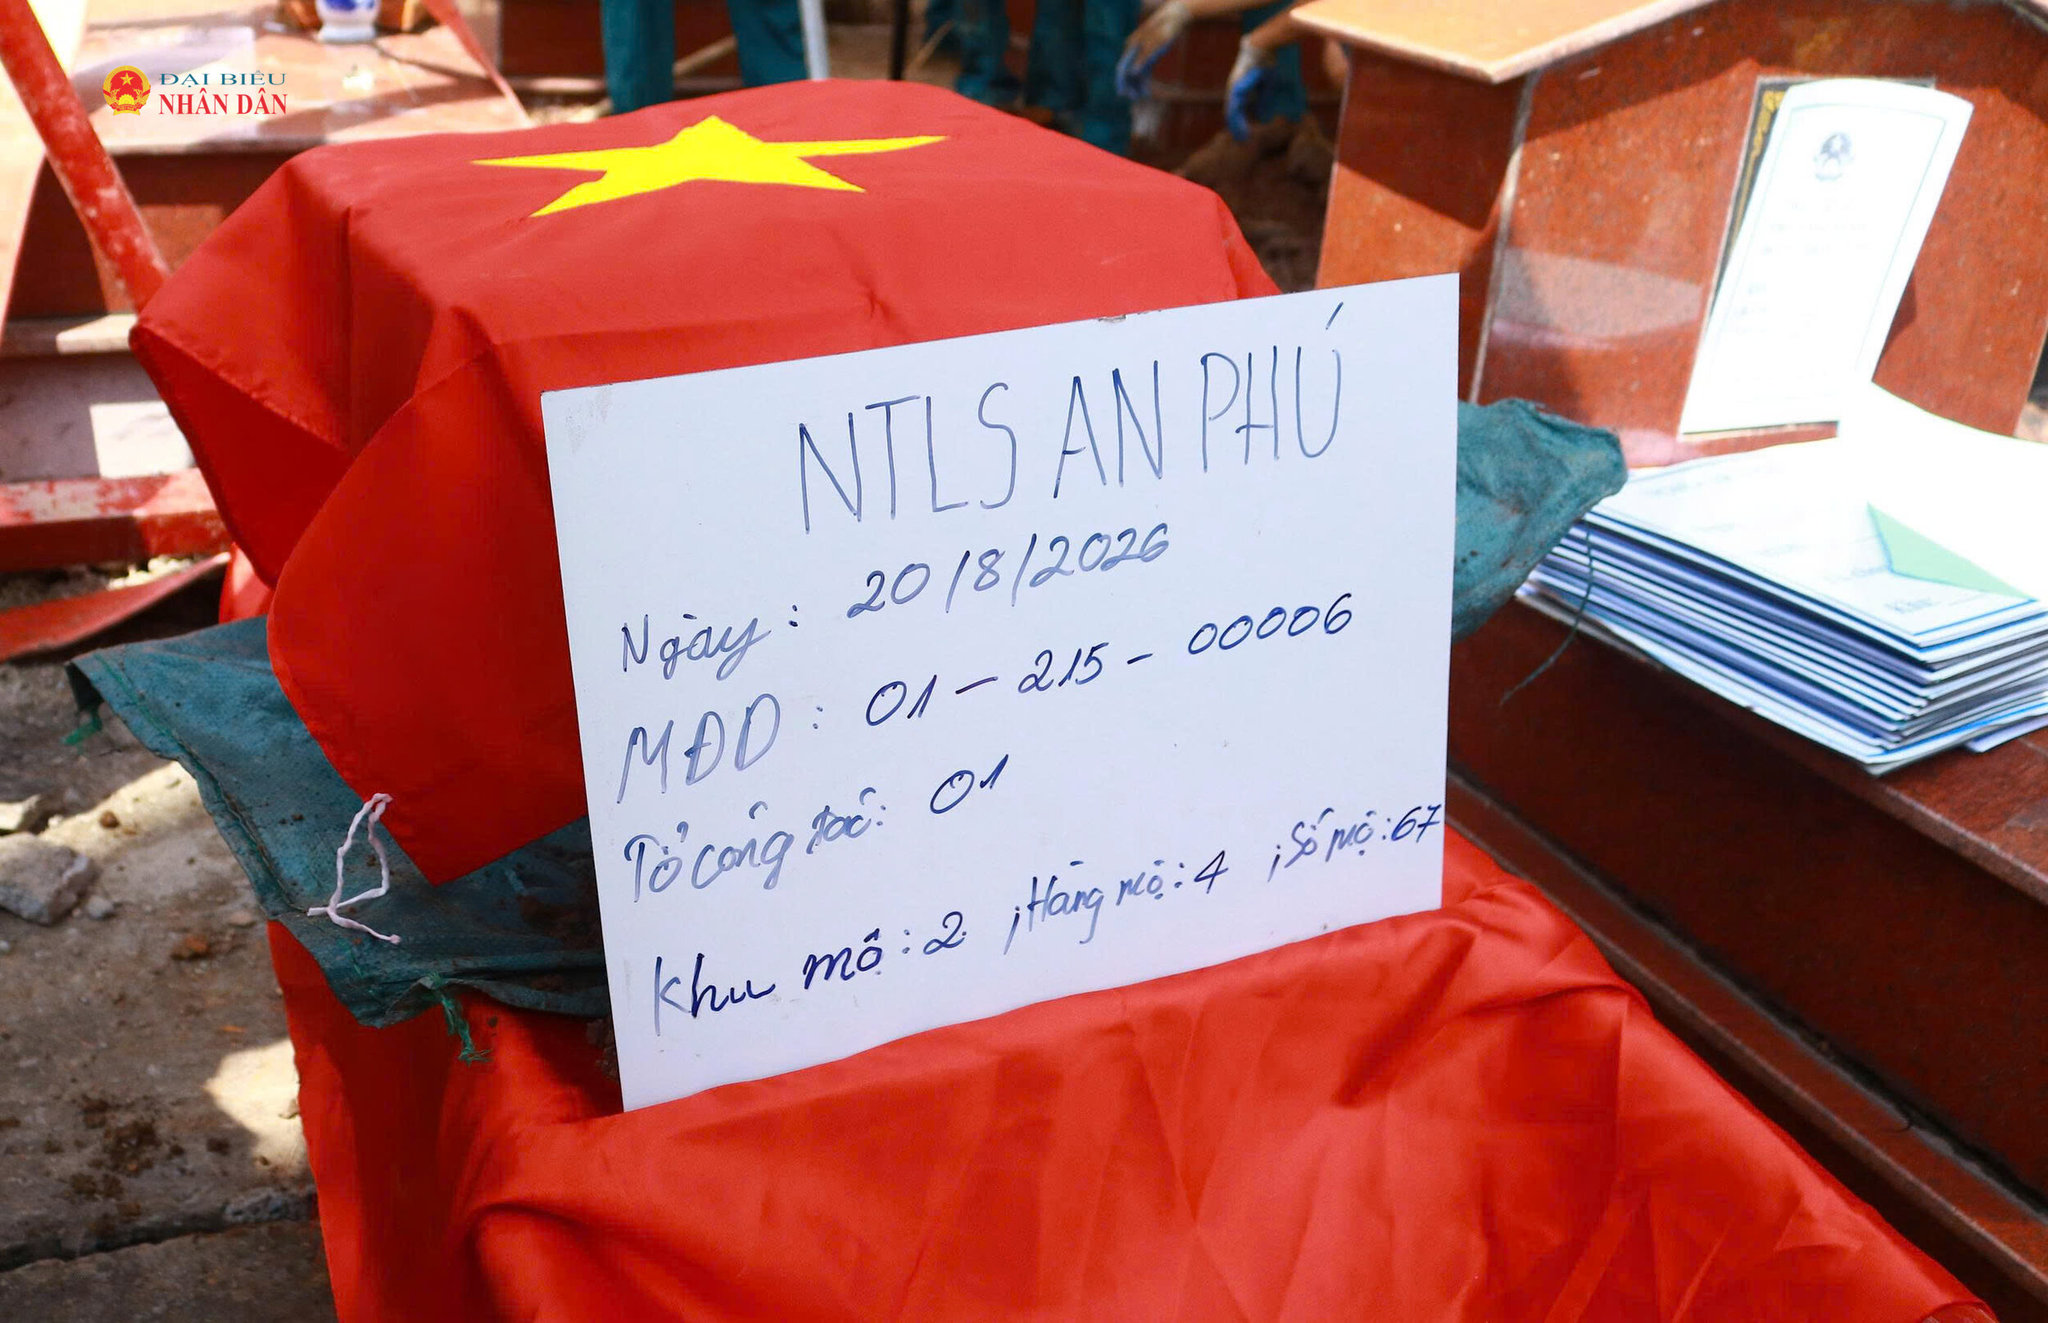 ĐẠI BIỂU
NHÂN DÂN
NTLS AN PHÚ
Ngày: 20/8/2026
MĐD: 01-215-00006
Tổ công tác: 01
Khu mộ: 2 ; Hàng mộ: 4 ; Số mộ: 67